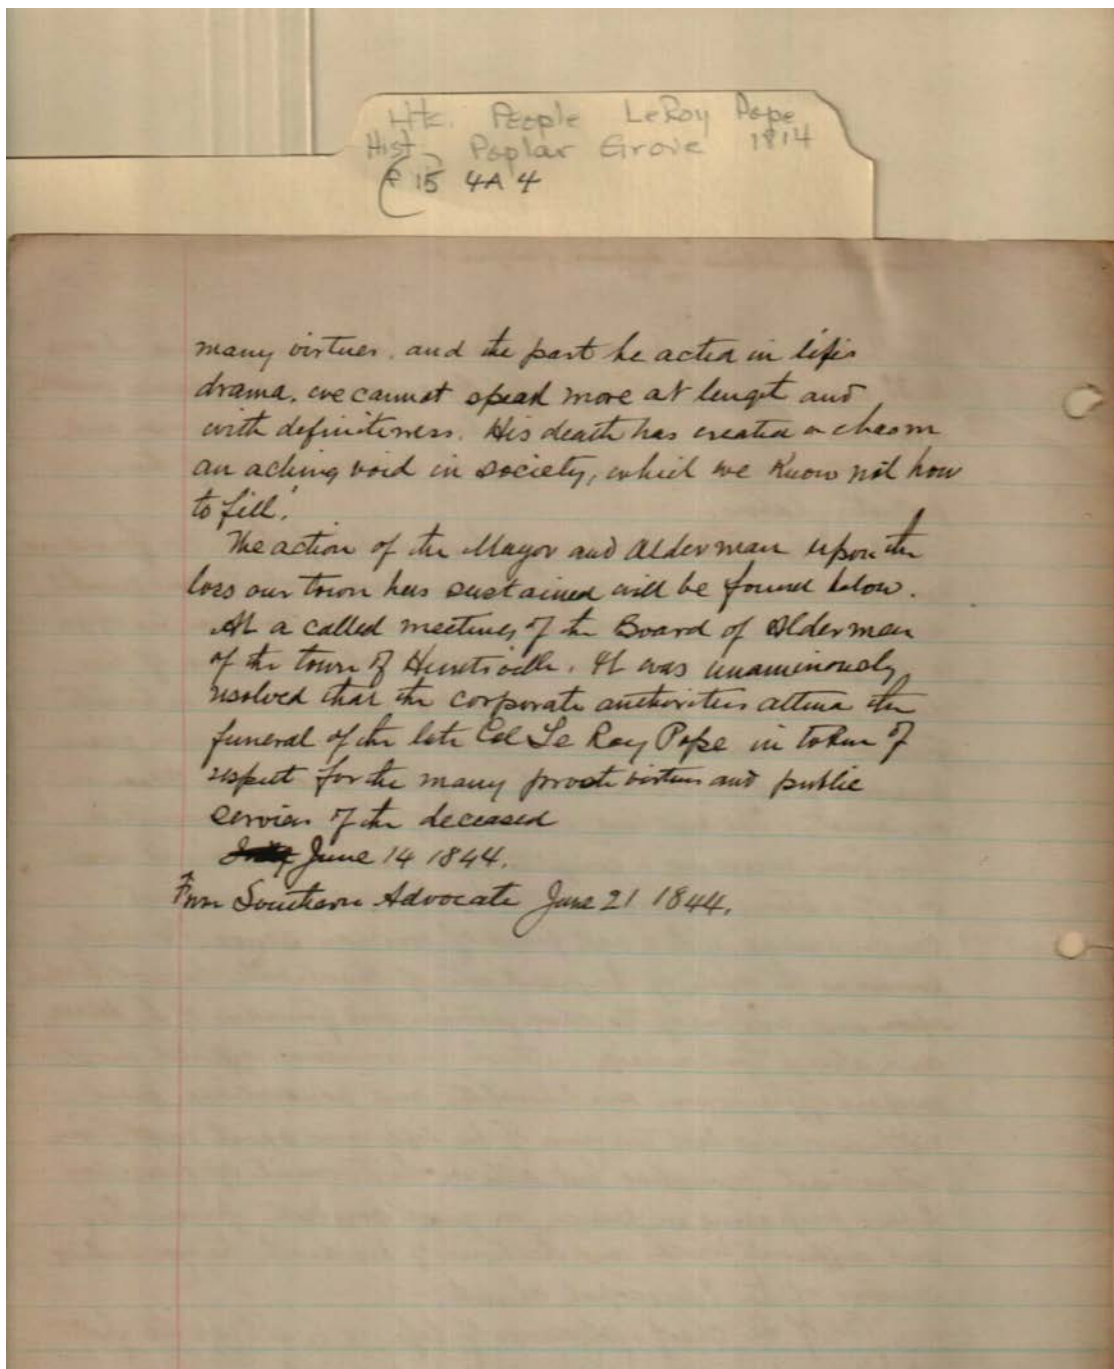 Hts. People LeRoy Pope
Hist - Poplar Grove 1814
F 15 4A 4
many virtues, and the part he acted in life's
drama, we cannot speak more at lenght and
with definiteness. His death has created a chasm
an aching void in society, which we know not how
to fill."
The action of the Mayor and Alderman upon the
loss our town has sustained will be found below.
At a called meeting of the Board of Aldermen
of the town of Huntsville. It was unaminously
resolved that the corporate authorities attend the
funeral of the late Col Le Roy Pope in token of
respect for the many private virtues and public
services of the deceased
June 14 1844.
From Southern Advocate June 21 1844.